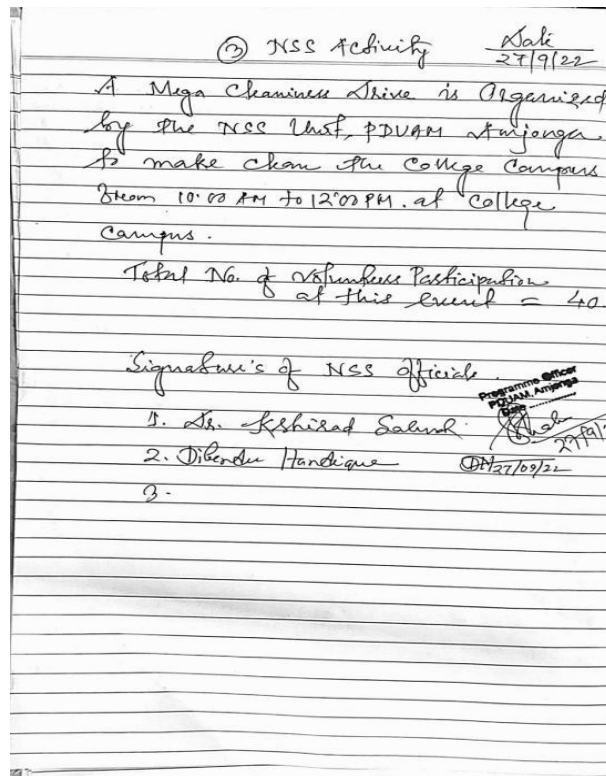 ③ NSS Activity Date
27/9/22
A Mega Cleaniness Drive is Organised
by the NSS Unit, PDUAM Amjonga
to make clean the College Campus
from 10:00 AM to 12:00 PM. at College
Campus.
Total No. of Volunteers Participation
at this event = 40.
Signature's of NSS officials.
Programme Officer
PDUAM, Amjonga
Date
1. Dr. Kshirad
27/9/
2. Dibendu Handique
27/09/22
3.